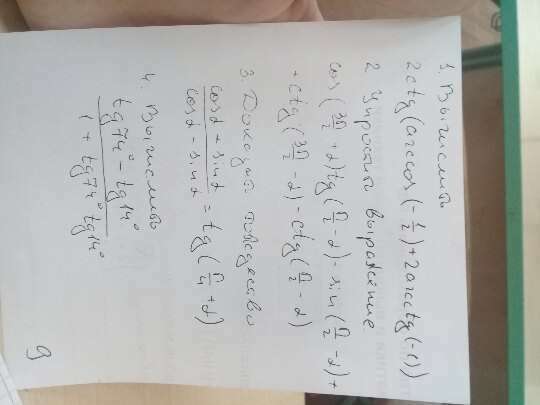 1. Вычислить
2ctg(arccos(-1/2)+2arcctg(-1))
2 Упростить выражение
cos(3π/2+α)tg(π/2-α)-sin(π/2-α)+
+ctg(3π/2-α)-ctg(π/2-α)
3. Доказать тождество
(cosα+sinα)/(cosα-sinα)=tg(π/4+α)
4. Вычислить
(tg74°-tg14°)/(1+tg74°tg14°)
9